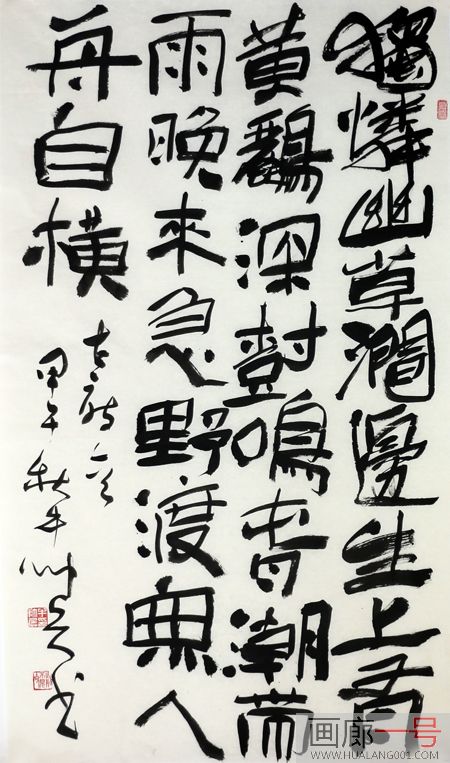 獨憐幽草澗邊生上有
黃鸝深樹鳴春潮帶
雨晚來急野渡無人
舟自橫
甲午秋
画廊一号
WWW.HUALANG001.COM